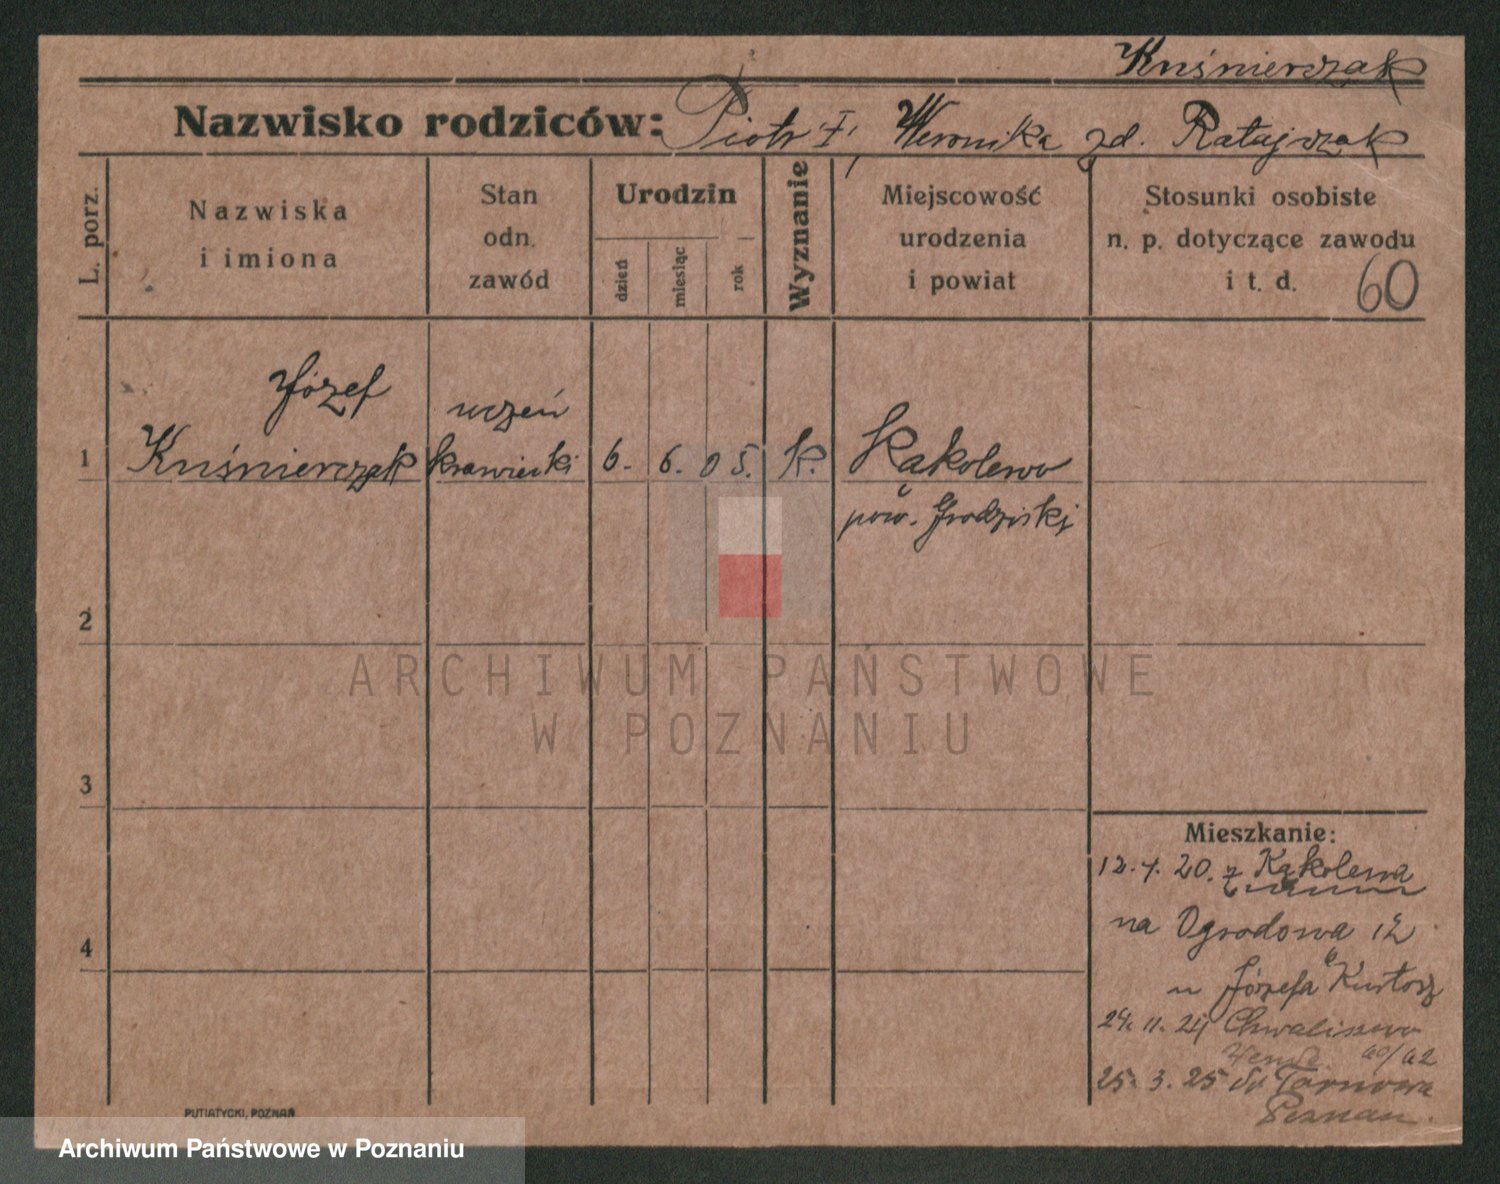 Kuśnierczak
Nazwisko rodziców: Piotr i Weronika zd. Ratajczak
L. porz.
Nazwiska
i imiona
Stan
odn.
zawód
Urodzin
dzień
miesiąc
rok
Wyznanie
Miejscowość
urodzenia
i powiat
Stosunki osobiste
n. p. dotyczące zawodu
i t. d.
60
1
Józef
Kuśnierczak
uczeń
krawiecki
6. 6. 05.
k.
Kąkolewo
pow. Grodziski
2
ARCHIWUM PAŃSTWOWE
W POZNANIU
3
Mieszkanie:
12. 4. 20. z Kąkolewa
na Ogrodowa 12
u Józefa Kurtosz
4
24. 11. 24 Chwaliszewo
60/62
25. 3. 25 do Tarnowa
Poznań.
PUTIATYCKI, POZNAŃ
Archiwum Państwowe w Poznaniu